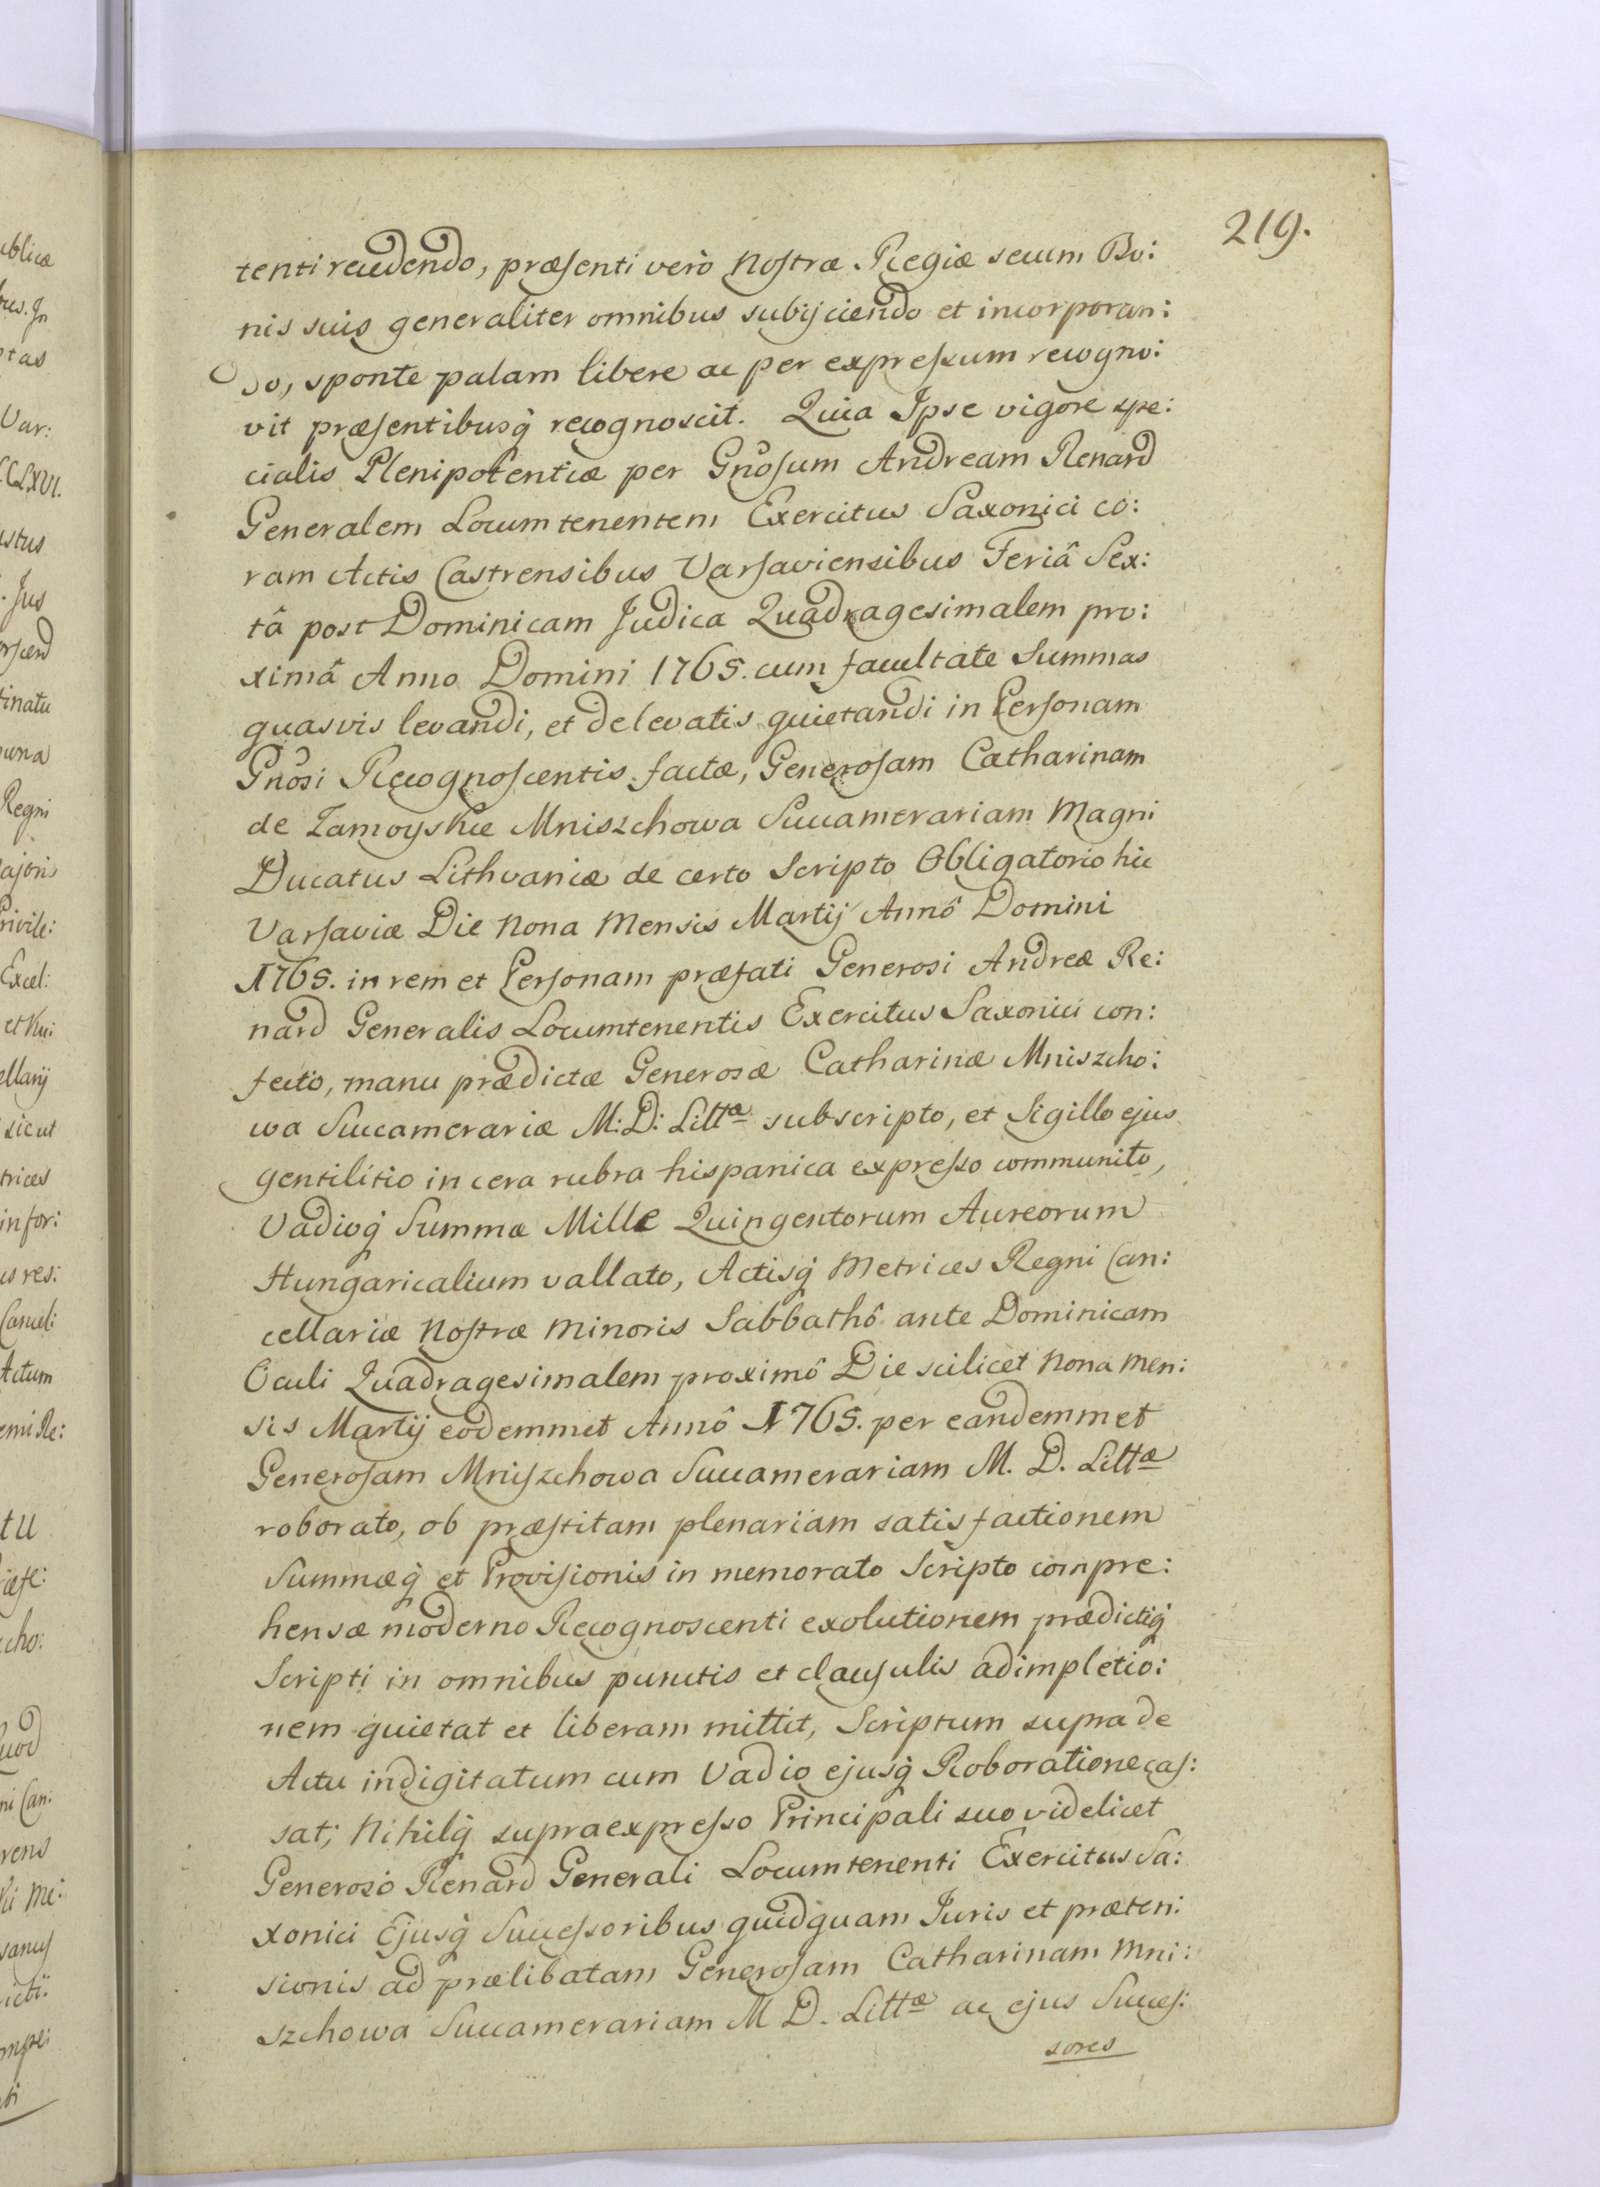 219.
tenti recedendo, præsenti verò Nostræ Regiæ secum Bo:
nis suis generaliter omnibus subijciendo et incorporan:
do, sponte palam libere ac per expressum recogno:
vit præsentibusq́ recognoscit. Quia Ipse vigore spe:
cialis Plenipotentiæ per Gnosum Andream Renard
Generalem Locumtenentem Exercitus Saxonici co:
ram Actis Castrensibus Varsaviensibus Feriâ Sex:
tâ post Dominicam Judica Quadragesimalem pro:
ximâ Anno Domini 1765. cum facultate Summas
quasvis levandi, et de levatis quietandi in Personam
Gnosi Recognoscentis factæ, Generosam Catharinam
de Zamoyskie Mniszchowa Succamerariam Magni
Ducatus Lithvaniæ de certo Scripto Obligatorio hic
Varsaviæ Die Nona Mensis Martij Annô Domini
1765. in rem et Personam præfati Generosi Andreæ Re:
nard Generalis Locumtenentis Exercitus Saxonici con:
fecto, manu prædictæ Generosæ Catharinæ Mniszcho:
wa Succamerariæ M: D: Littæ subscripto, et Sigillo ejus
gentilitio in cera rubra hispanica expresso communito,
Vadioq́ Summæ Mille Quingentorum Aureorum
Hungaricalium vallato, Actisq́ Metrices Regni Can:
cellariæ Nostræ Minoris Sabbathô ante Dominicam
Oculi Quadragesimalem proximô Die scilicet Nona Men:
sis Martij eodemmet Annô 1765. per eandemmet
Generosam Mniszchowa Succamerariam M. D. Littæ
roborato, ob præstitam plenariam satisfactionem
Summæq́ et Provisionis in memorato Scripto compre:
hensæ moderno Recognoscenti exolutionem prædictiq́
Scripti in omnibus punctis et clausulis adimpletio:
nem quietat et liberam mittit, Scriptum supra de
Actu indigitatum cum Vadio ejusq́ Roboratione cas:
sat; Nihilq́ supraexpresso Principali suo videlicet
Generoso Renard Generali Locumtenenti Exercitus Sa:
xonici Ejusq́ Successoribus quidquam Iuris et præten:
sionis ad prælibatam Generosam Catharinam Mni:
szchowa Succamerariam M D. Littæ ac ejus Succes:
sores